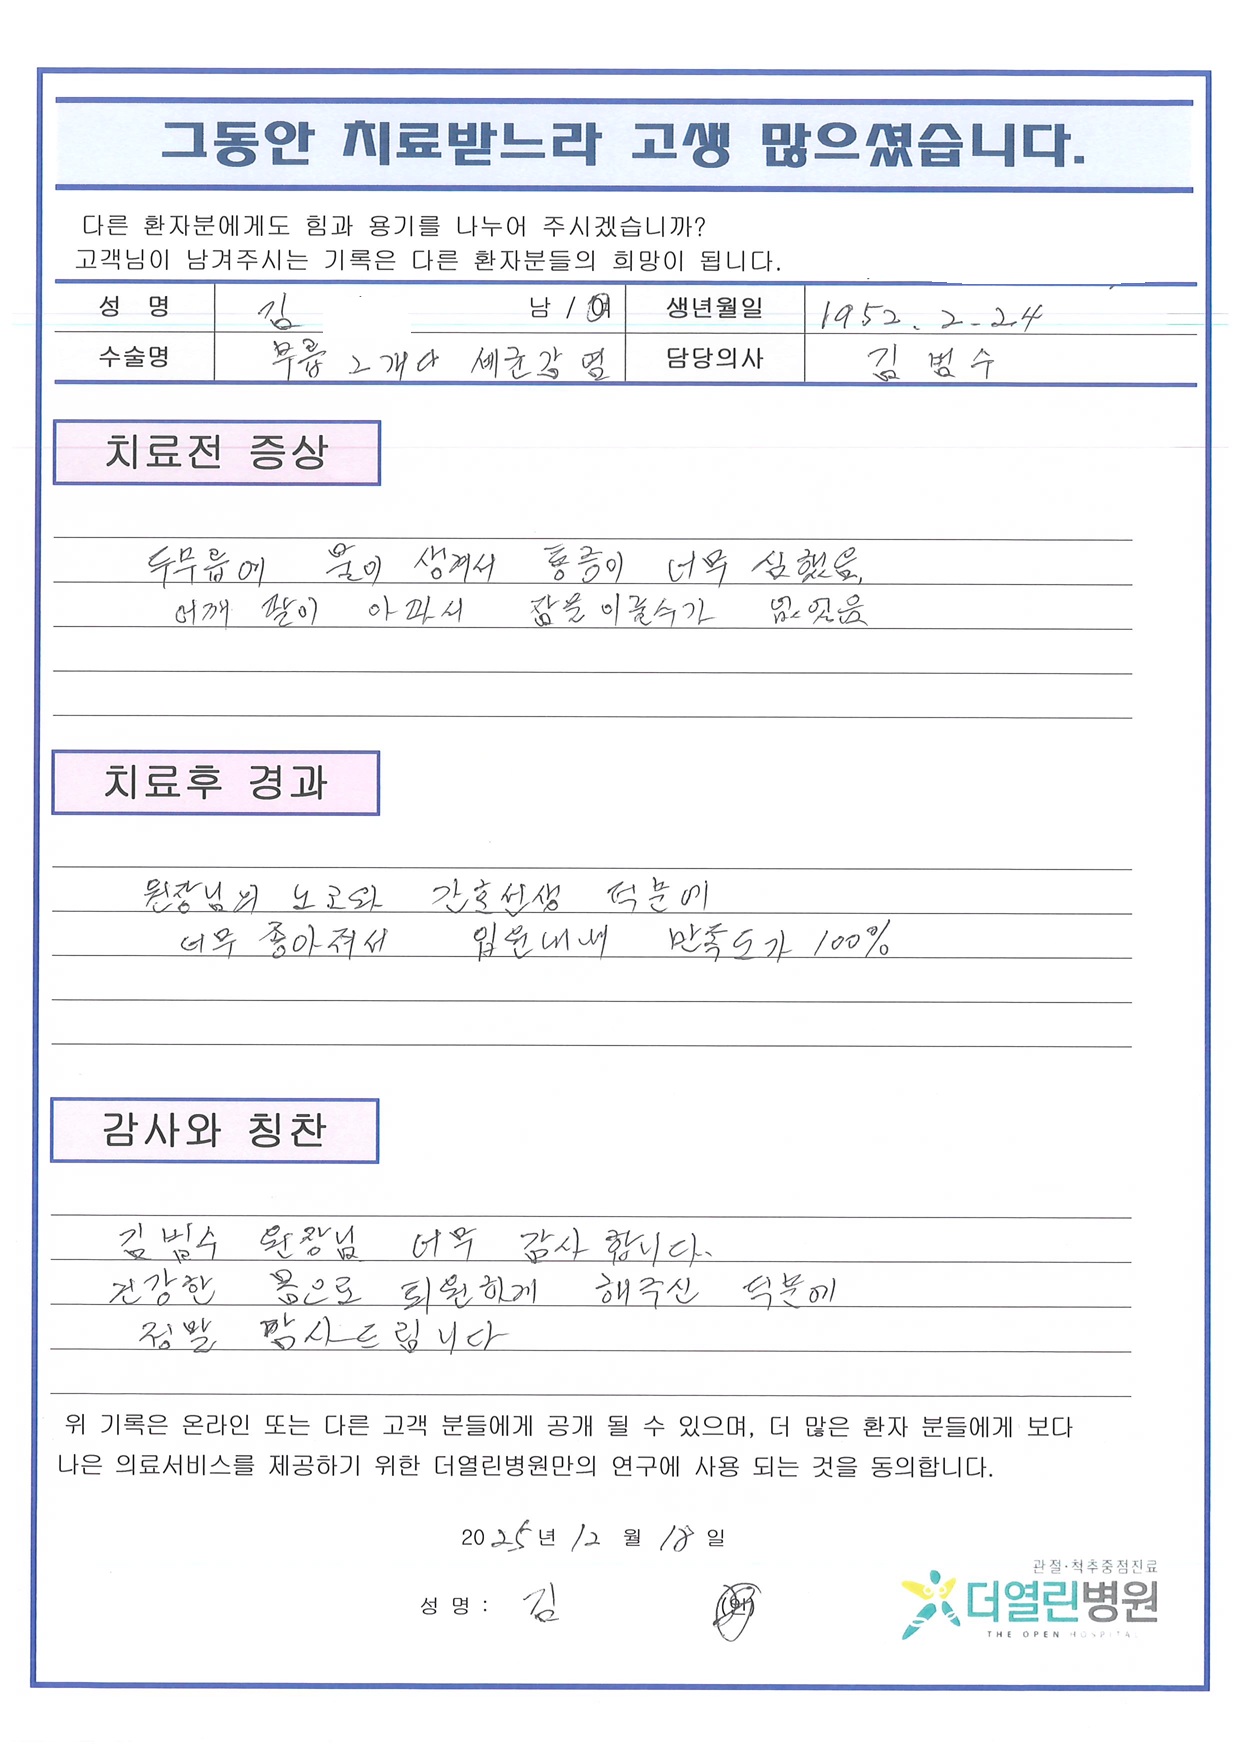 그동안 치료받느라 고생 많으셨습니다.
다른 환자분에게도 힘과 용기를 나누어 주시겠습니까?
고객님이 남겨주시는 기록은 다른 환자분들의 희망이 됩니다.
성 명 김 남 / 여 생년월일 1952. 2. 24
수술명 무릎 2개다 세균감염 담당의사 김범수
치료전 증상
두무릎에 물이 생겨서 통증이 너무 심했음.
어깨 팔이 아파서 잠을 이룰수가 없엇음
치료후 경과
원장님의 노고와 간호선생 덕분에
너무 좋아져서 입원내내 만족도가 100%
감사와 칭찬
김범수 원장님 너무 감사합니다.
건강한 몸으로 퇴원하게 해주신 덕분에
정말 감사드립니다
위 기록은 온라인 또는 다른 고객 분들에게 공개 될 수 있으며, 더 많은 환자 분들에게 보다
나은 의료서비스를 제공하기 위한 더열린병원만의 연구에 사용 되는 것을 동의합니다.
2025년 12 월 18 일
성 명 : 김 (인)
관절·척추중점진료
더열린병원
THE OPEN HOSPITAL